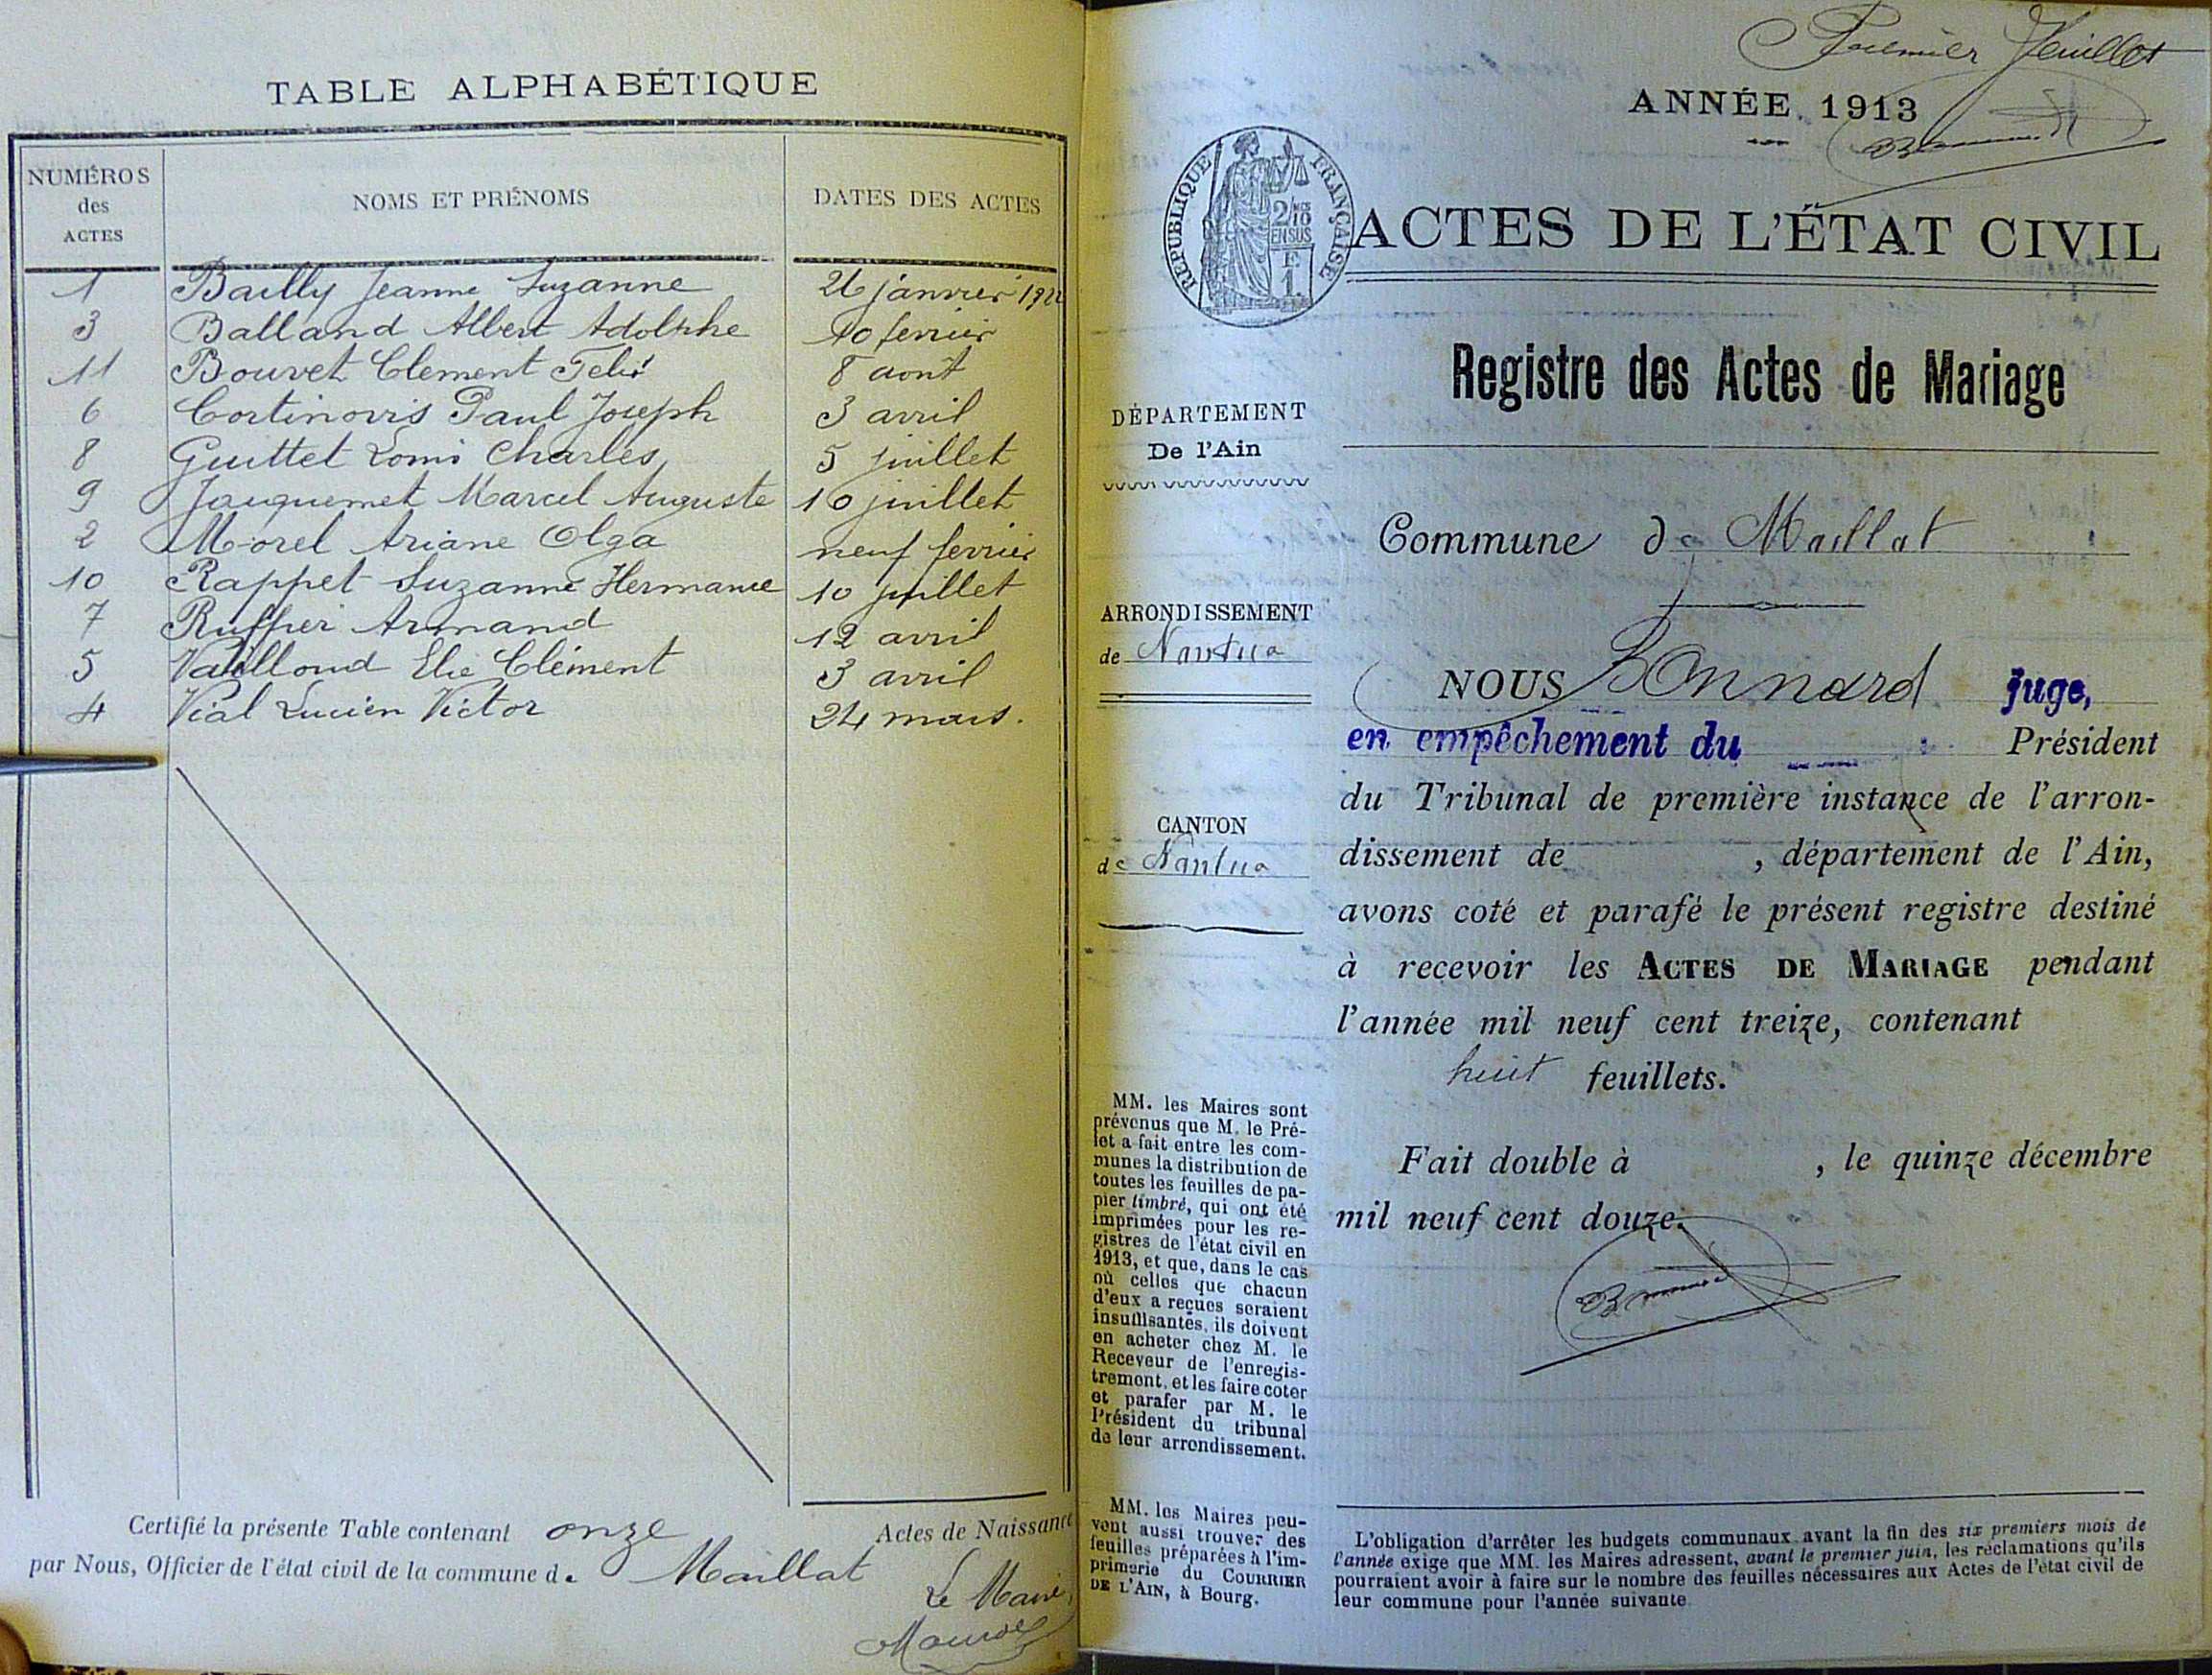 TABLE ALPHABÉTIQUE
NUMÉROS des ACTES NOMS ET PRÉNOMS DATES DES ACTES
1 Bailly Jeanne Suzanne 26 janvier
3 Balland Albert Adolphe 10 fevrier
11 Bouvet Clement Felix 8 aout
6 Cortinovis Paul Joseph 3 avril
8 Guittet Charles 5 juillet
9 Jacquemet Marcel Auguste 10 juillet
2 Morel Ariane Olga neuf fevrier
10 Rappet Suzanne Hermance 10 juillet
7 Ruffier Armand 12 avril
5 Vailloud Elie Clément 3 avril
4 Vial Lucien Victor 24 mars.
Certifié la présente Table contenant onze Actes de Naissance
par Nous, Officier de l'état civil de la commune de Maillat
Le Maire,
Premier Feuillet
ANNÉE 1913
RÉPUBLIQUE FRANÇAISE
2/10 MES
EN SUS
F.
1.
ACTES DE L'ÉTAT CIVIL
Registre des Actes de Mariage
DÉPARTEMENT
De l'Ain
Commune de Maillat
ARRONDISSEMENT
de Nantua
CANTON
de Nantua
NOUS Bonnard juge,
en empêchement du Président
du Tribunal de première instance de l'arron-
dissement de , département de l'Ain,
avons coté et parafé le présent registre destiné
à recevoir les ACTES DE MARIAGE pendant
l'année mil neuf cent treize, contenant
huit feuillets.
Fait double à , le quinze décembre
mil neuf cent douze.
Bonnard
MM. les Maires sont
prévenus que M. le Pré-
fet a fait entre les com-
munes la distribution de
toutes les feuilles de pa-
pier timbré, qui ont été
imprimées pour les re-
gistres de l'état civil en
1913, et que, dans le cas
où celles que chacun
d'eux a reçues seraient
insuffisantes, ils doivent
en acheter chez M. le
Receveur de l'enregis-
trement, et les faire coter
et parafer par M. le
Président du tribunal
de leur arrondissement.
MM. les Maires peu-
vent aussi trouver des
feuilles préparées à l'im-
primerie du COURRIER
DE L'AIN, à Bourg.
L'obligation d'arrêter les budgets communaux avant la fin des six premiers mois de
l'année exige que MM. les Maires adressent, avant le premier juin, les réclamations qu'ils
pourraient avoir à faire sur le nombre des feuilles nécessaires aux Actes de l'état civil de
leur commune pour l'année suivante.